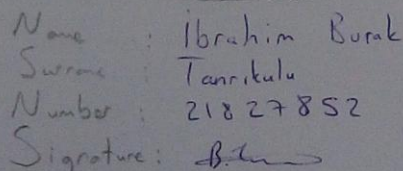 Name : İbrahim Burak
Surname : Tanrıkulu
Number : 21827852
Signature :